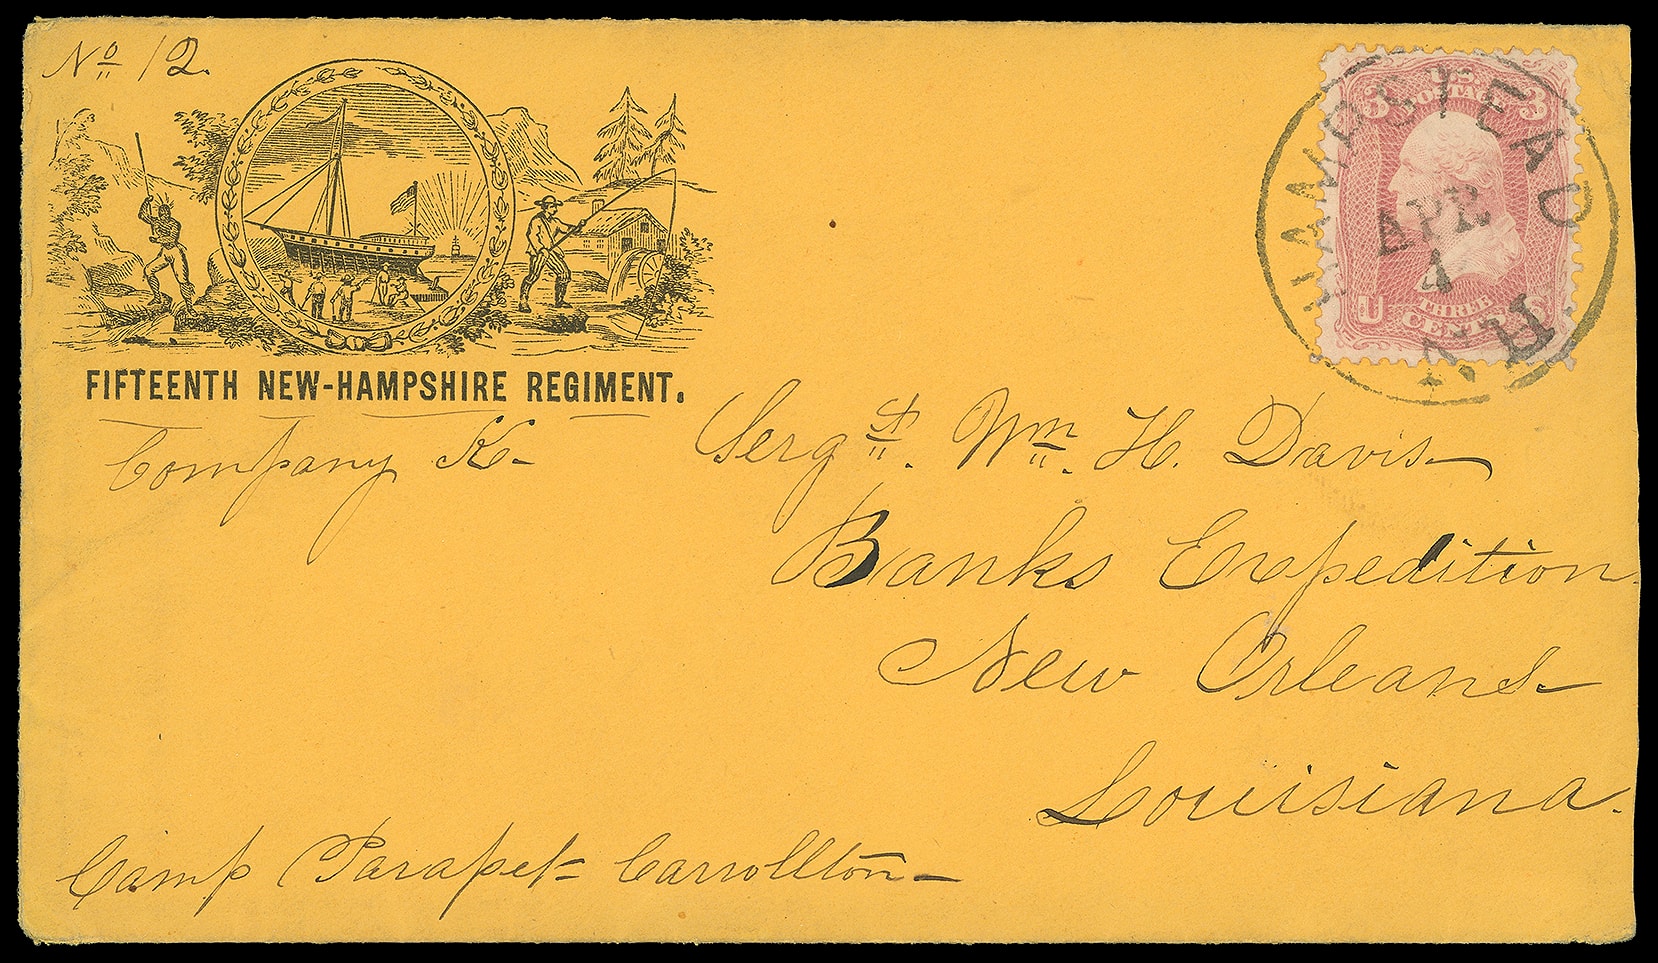 No 12.
FIFTEENTH NEW-HAMPSHIRE REGIMENT.
Company K.
3 U.S. POSTAGE 3
U THREE CENTS S
HAMPSTEAD
APR
4
N.H
Sergt. Wm. H. Davis
Banks Expedition
New Orleans
Louisiana.
Camp Parapet Carrollton